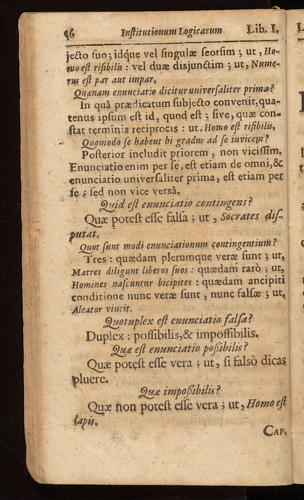 56 Institutionum Logicarum Lib. I.
jecto suo; idque vel singulæ seorsim; ut, Ho-
mo est risibilis: vel duæ disjunctim; ut, Nume-
rus est par aut impar.
Quænam enunciatio dicitur universaliter prima?
In quâ prædicatum subjecto convenit, qua-
tenus ipsum est id, quod est; sive, quæ con-
stat terminis reciprocis: ut, Homo est risibilis.
Quomodo se habent hi gradus ad se invicem?
Posterior includit priorem, non vicissim.
Enunciatio enim per se, est etiam de omni, &
enunciatio universaliter prima, est etiam per
se; sed non vice versâ.
Quid est enunciatio contingens?
Quæ potest esse falsa; ut, Socrates dis-
putat.
Quot sunt modi enunciationum contingentium?
Tres: quædam plerumque veræ sunt; ut,
Matres diligunt liberos suos: quædam rarò; ut,
Homines nascuntur bicipites: quædam ancipiti
conditione nunc veræ sunt, nunc falsæ; ut,
Aleator vincit.
Quotuplex est enunciatio falsa?
Duplex: possibilis, & impossibilis.
Quæ est enunciatio possibilis?
Quæ potest esse vera; ut, si falsò dicas
pluere.
Quæ impossibilis?
Quæ non potest esse vera; ut, Homo est
lapis.
CAP.